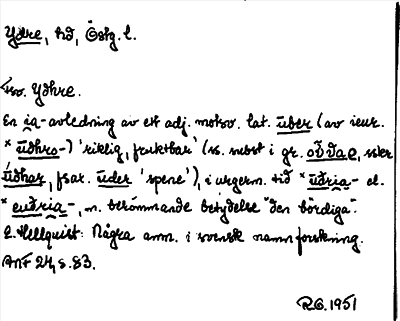 Ydre, hd, Östg. l.
<sv. Ydhre.
En ia-avledning av ett adj. motsv. lat. ūber (av ieur.
* ūdhro-) 'riklig, fruktbar' (ss. subst i gr. οὖθαρ, sskr
ūdhar, fsax. ūder 'spene'), i urgerm. tid *ūðria- el.
* euðria-, m. berömmande betydelse "den bördiga".
E. Hellquist: Några anm. i svensk namnforskning.
ANF 24, s. 83.
R.O. 1951